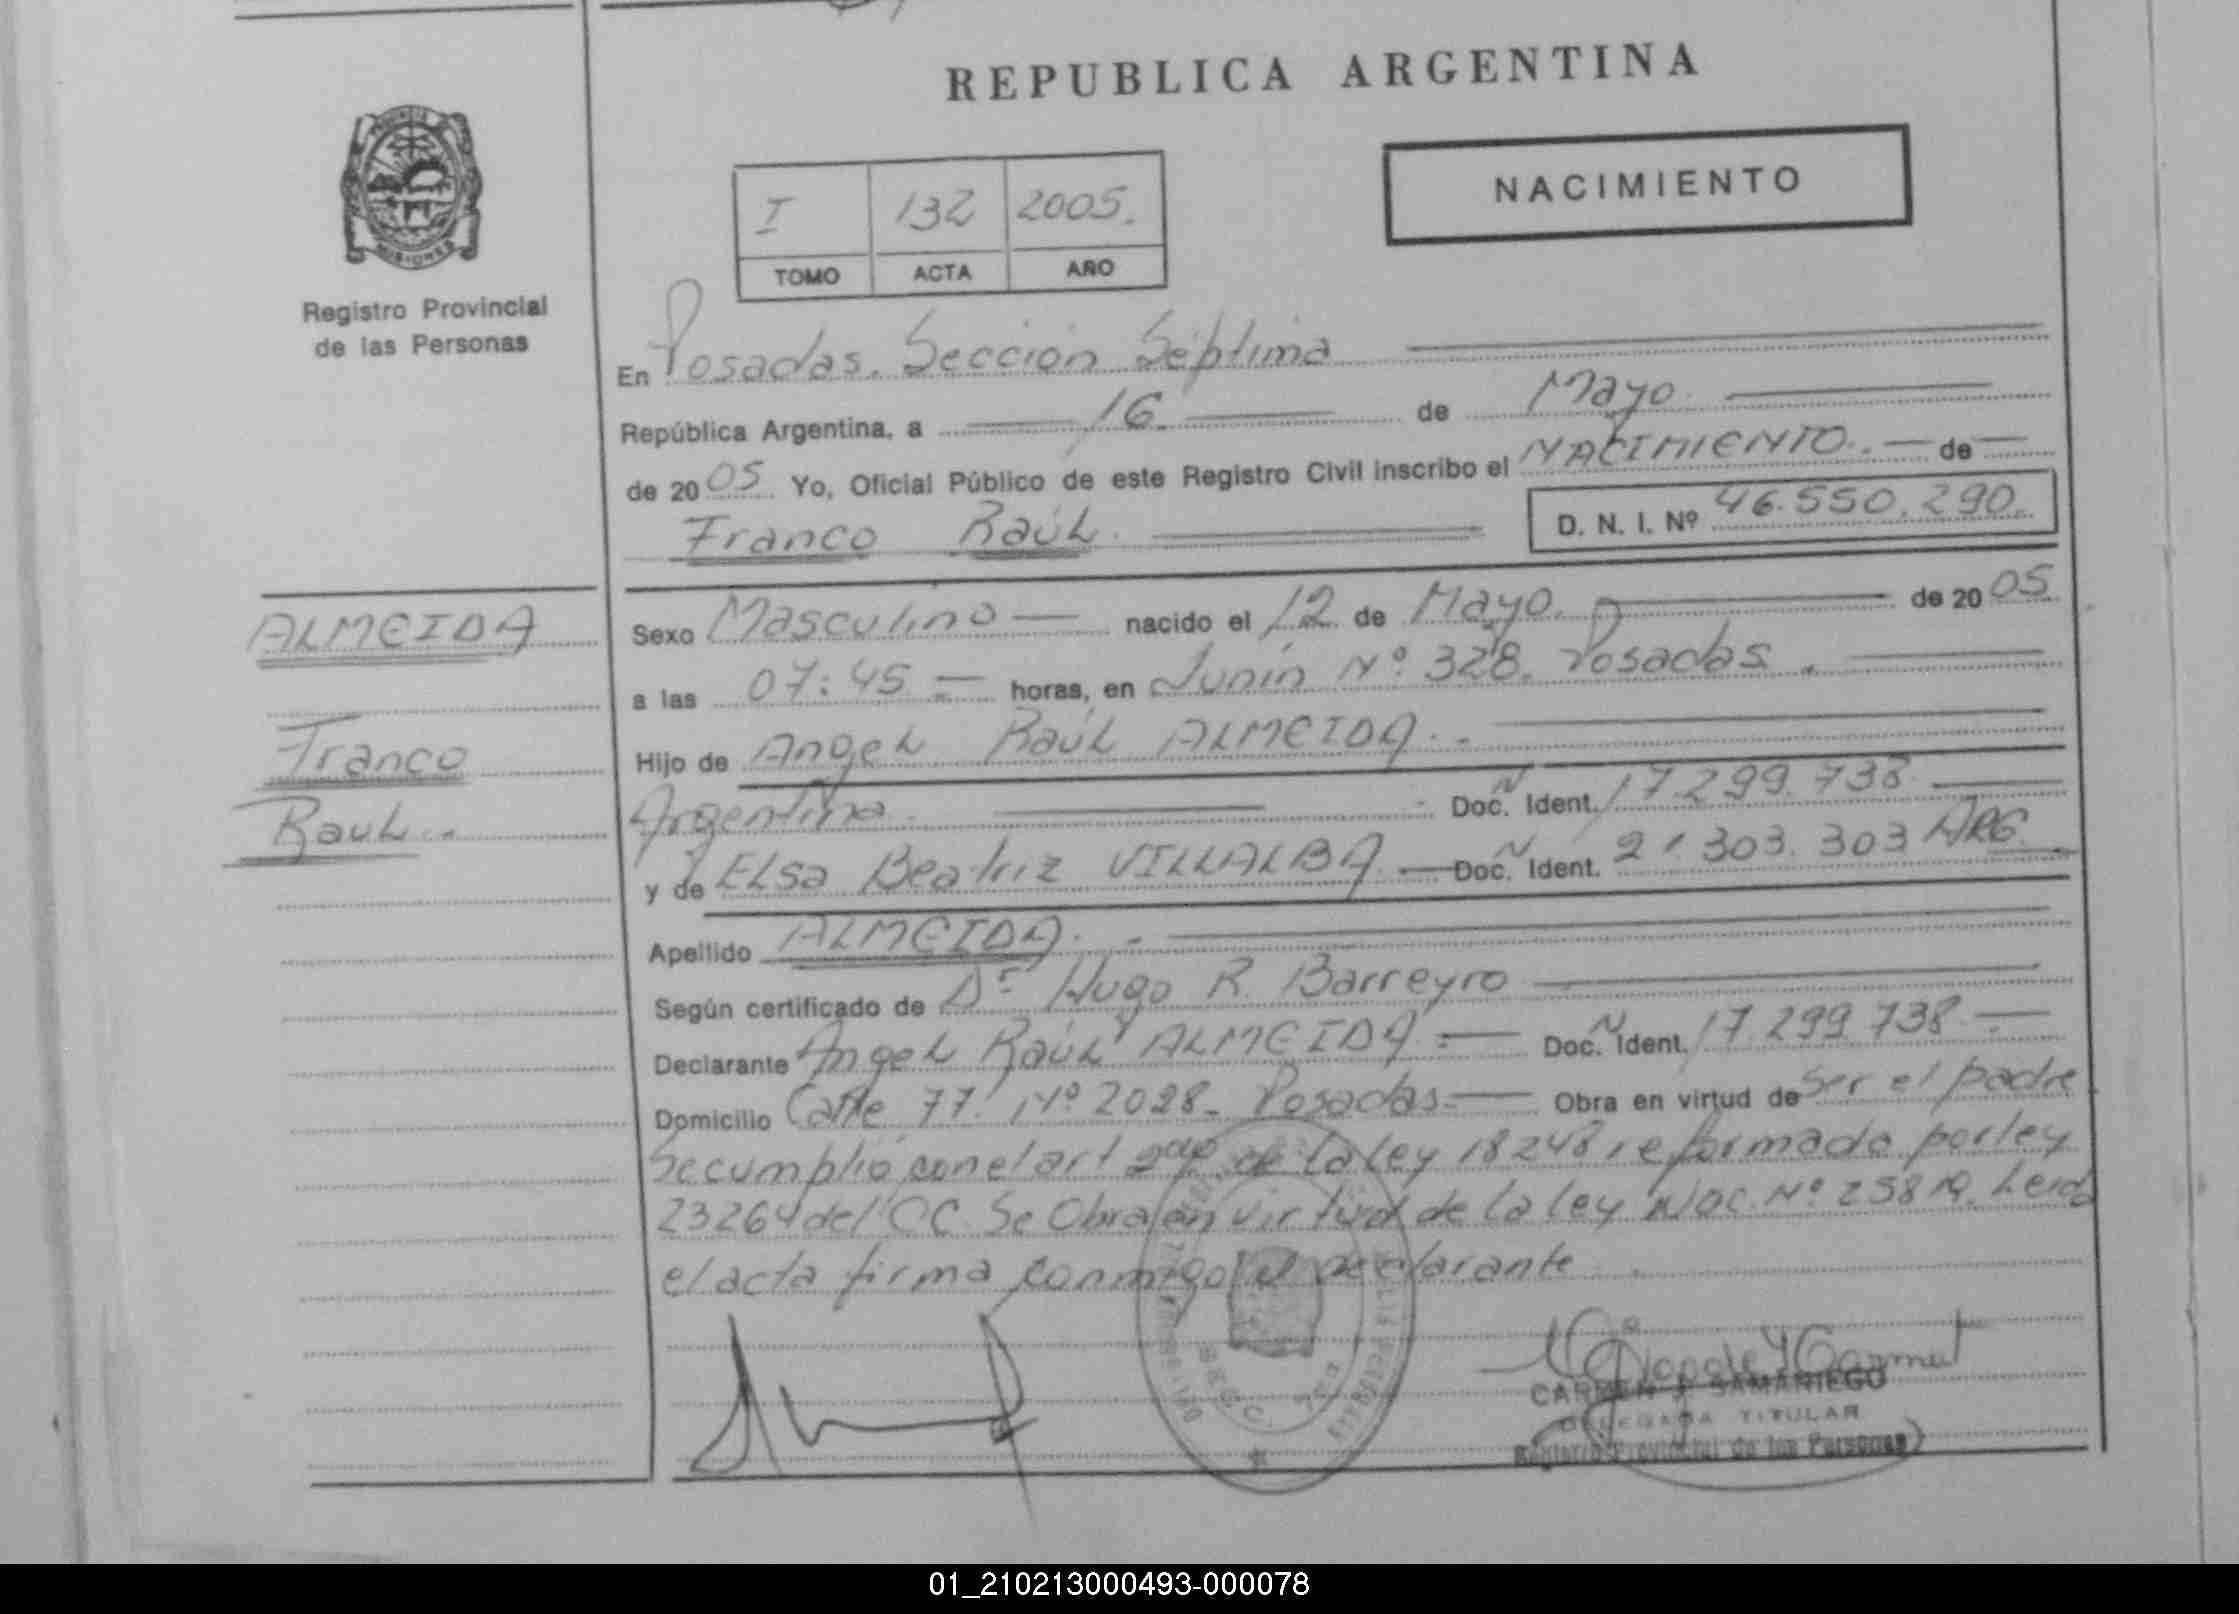 REPUBLICA ARGENTINA
NACIMIENTO
I 132 2005.
TOMO ACTA AÑO
PROVINCIA
MISIONES
Registro Provincial
de las Personas
En Posadas. Sección Séptima
República Argentina, a 16. de Mayo
de 2005 Yo, Oficial Público de este Registro Civil inscribo el NACIMIENTO. de
Franco Raúl. D. N. I. Nº 46.550.290.
ALMEIDA
Franco
Raul.
Sexo Masculino nacido el 12 de Mayo. de 2005
a las 07:45 horas, en Junín Nº 328. Posadas.
Hijo de Angel Raúl ALMEIDA.
Argentina. Doc. Ident. 17.299.738
y de Elsa Beatriz VILLALBA Doc. Ident. 21.303.303 ARG.
Apellido ALMEIDA.
Según certificado de Dr Hugo R. Barreyro
Declarante Angel Raúl ALMEIDA. Doc. Ident. 17.299.738
Domicilio Calle 77. Nº 2028. Posadas Obra en virtud de Ser el padre
Se cumplió con el art 2do de la ley 18248 reformada por ley
23264 del CC. Se Obra en virtud de la ley Nac. Nº 25819. Leida
el acta firma conmigo el declarante
SECC. 7ma
CARMEN SAMANIEGO
DELEGADA TITULAR
Registro Provincial de las Personas
01_210213000493-000078